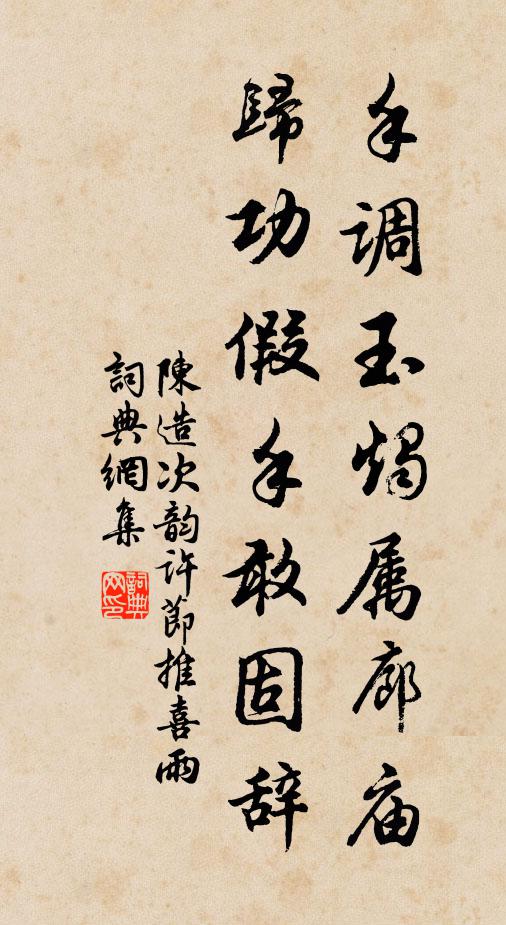 手调玉烛属廊庙
歸功假手敢固辞
陳造次韵许節推喜雨
詞典網集
詞典网印